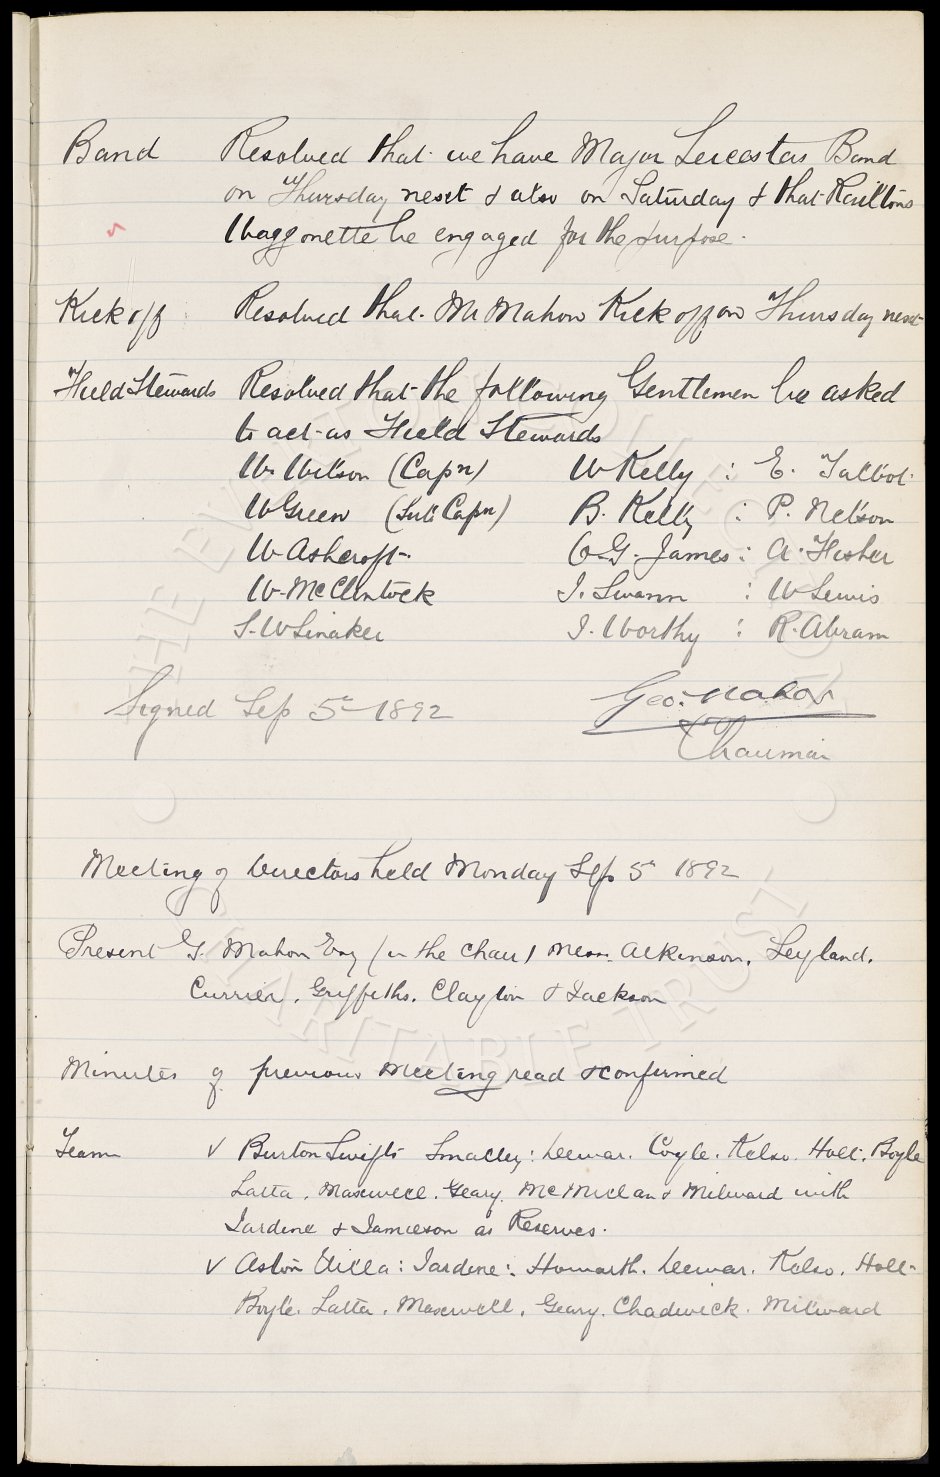 Band Resolved that we have Major Leicesters Band
on Thursday next & also on Saturday & that Railtons
Waggonette be engaged for the purpose.
Kick off Resolved that Mr Mahon Kick off on Thursday next
Field Stewards Resolved that the following Gentlemen be asked
to act as Field Stewards
W. Wilson (Capn) W Kelly : E. Talbot
W Green (Sub Capn) B. Kelly : P. Nelson
W Ashcroft O G. James : A. Fisher
W. McClintock J. Swann : W Lewis
S. W Linaker J. Worthy : R. Abram
Signed Sep 5th 1892 Geo. Mahon
Chairman
Meeting of Directors held Monday Sep 5th 1892
Present G. Mahon Esq (in the chair) Messrs. Atkinson, Leyland,
Currier, Griffiths, Clayton & Jackson
Minutes of previous Meeting read & confirmed
Team v Burton Swifts Smalley : Dewar. Coyle. Kelso. Holt. Boyle
Latta. Maxwell. Geary. McMillan & Milward with
Jardine & Jamieson as Reserves.
v Aston Villa : Jardine : Howarth. Dewar. Kelso. Holt
Boyle. Latta. Maxwell. Geary. Chadwick. Milward
THE EVERTON
CHARITABLE TRUST